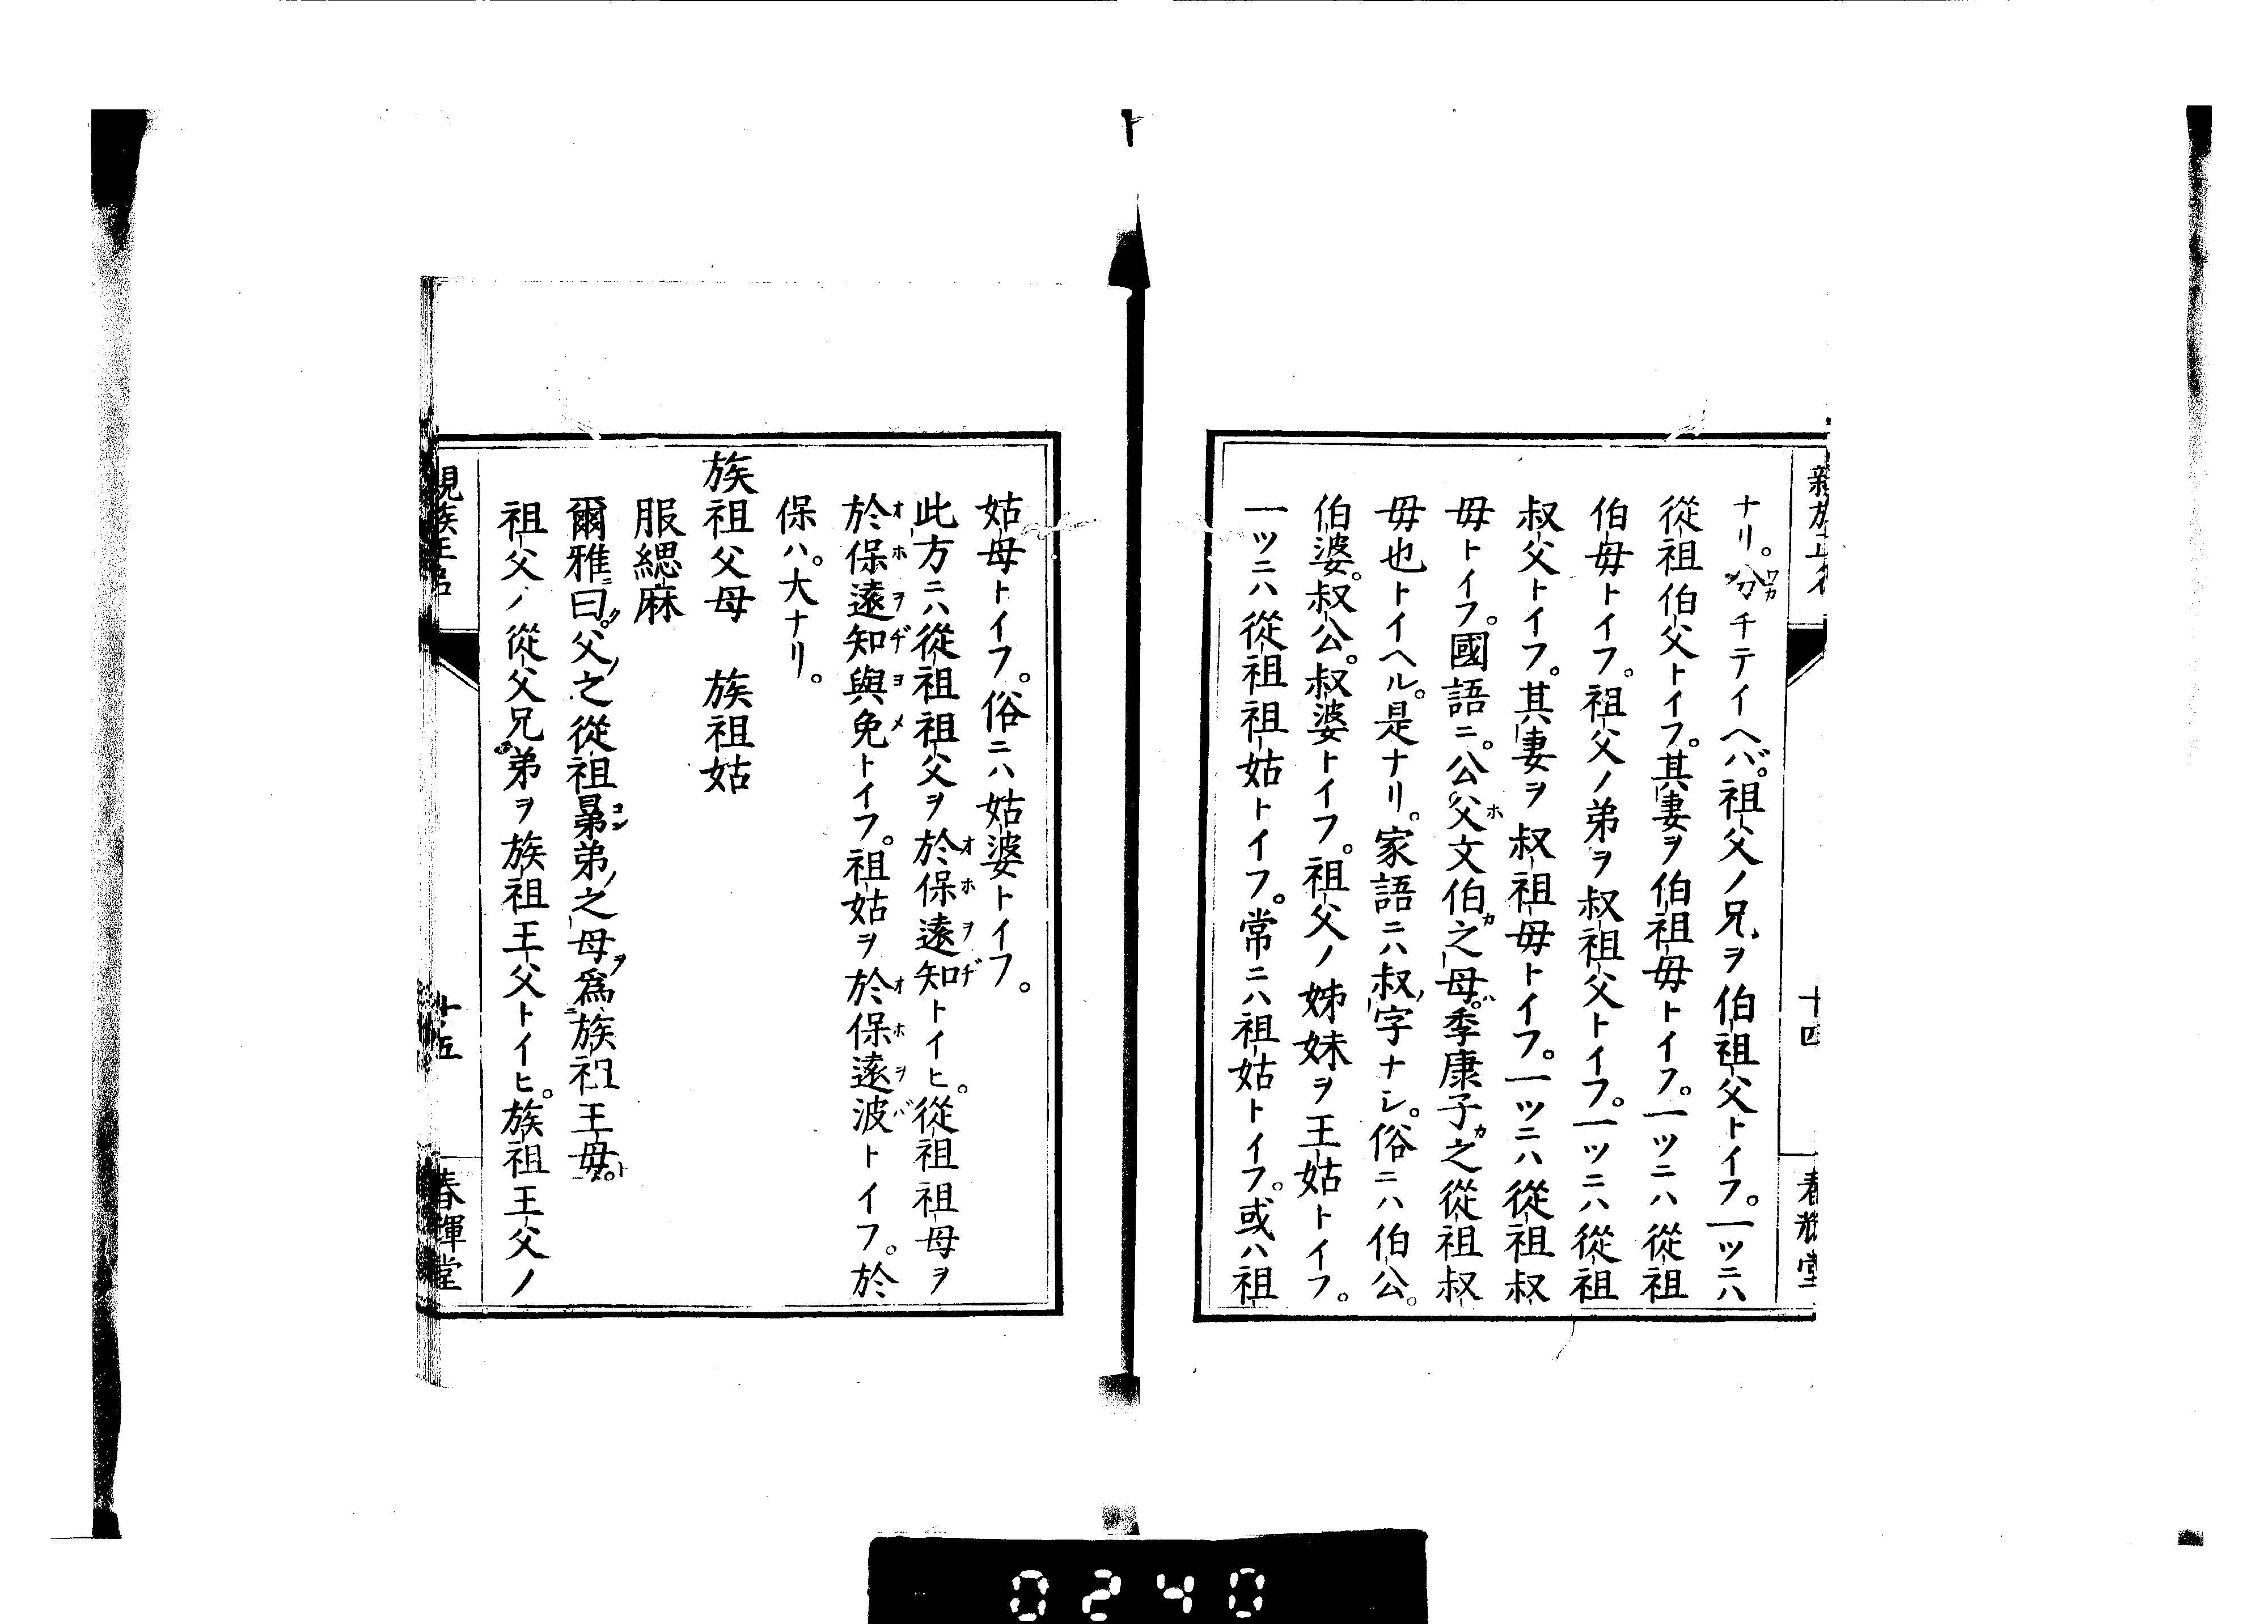 ナリ。分チテイヘバ。祖父ノ兄ヲ伯祖父トイフ。一ツニハ
從祖伯父トイフ。其妻ヲ伯祖毋トイフ。一ツニハ從祖
伯毋トイフ。祖父ノ弟ヲ叔祖父トイフ。一ツニハ從祖
叔父トイフ。其妻ヲ叔祖毋トイフ。一ツニハ從祖叔
毋トイフ。國語ニ。公父文伯之母。季康子之從祖叔
毋也トイヘル。是ナリ。家語ニハ叔字ナシ。俗ニハ伯公。
伯婆。叔公。叔婆トイフ。祖父ノ姊妹ヲ王姑トイフ。
一ツニハ從祖祖姑トイフ。常ニハ祖姑トイフ。或ハ祖
十四
姑母トイフ。俗ニハ姑婆トイフ。
此方ニハ從祖祖父ヲ於保遠知トイヒ。從祖祖母ヲ
於保遠知與免トイフ。祖姑ヲ於保遠波トイフ。於
保ハ。大ナリ。
族祖父母 族祖姑
服緦麻
爾雅曰。父之從祖晜弟之母爲族祖王毋。
祖父ノ從父兄弟ヲ族祖王父トイヒ。族祖王父ノ
十五
春暉堂
0240